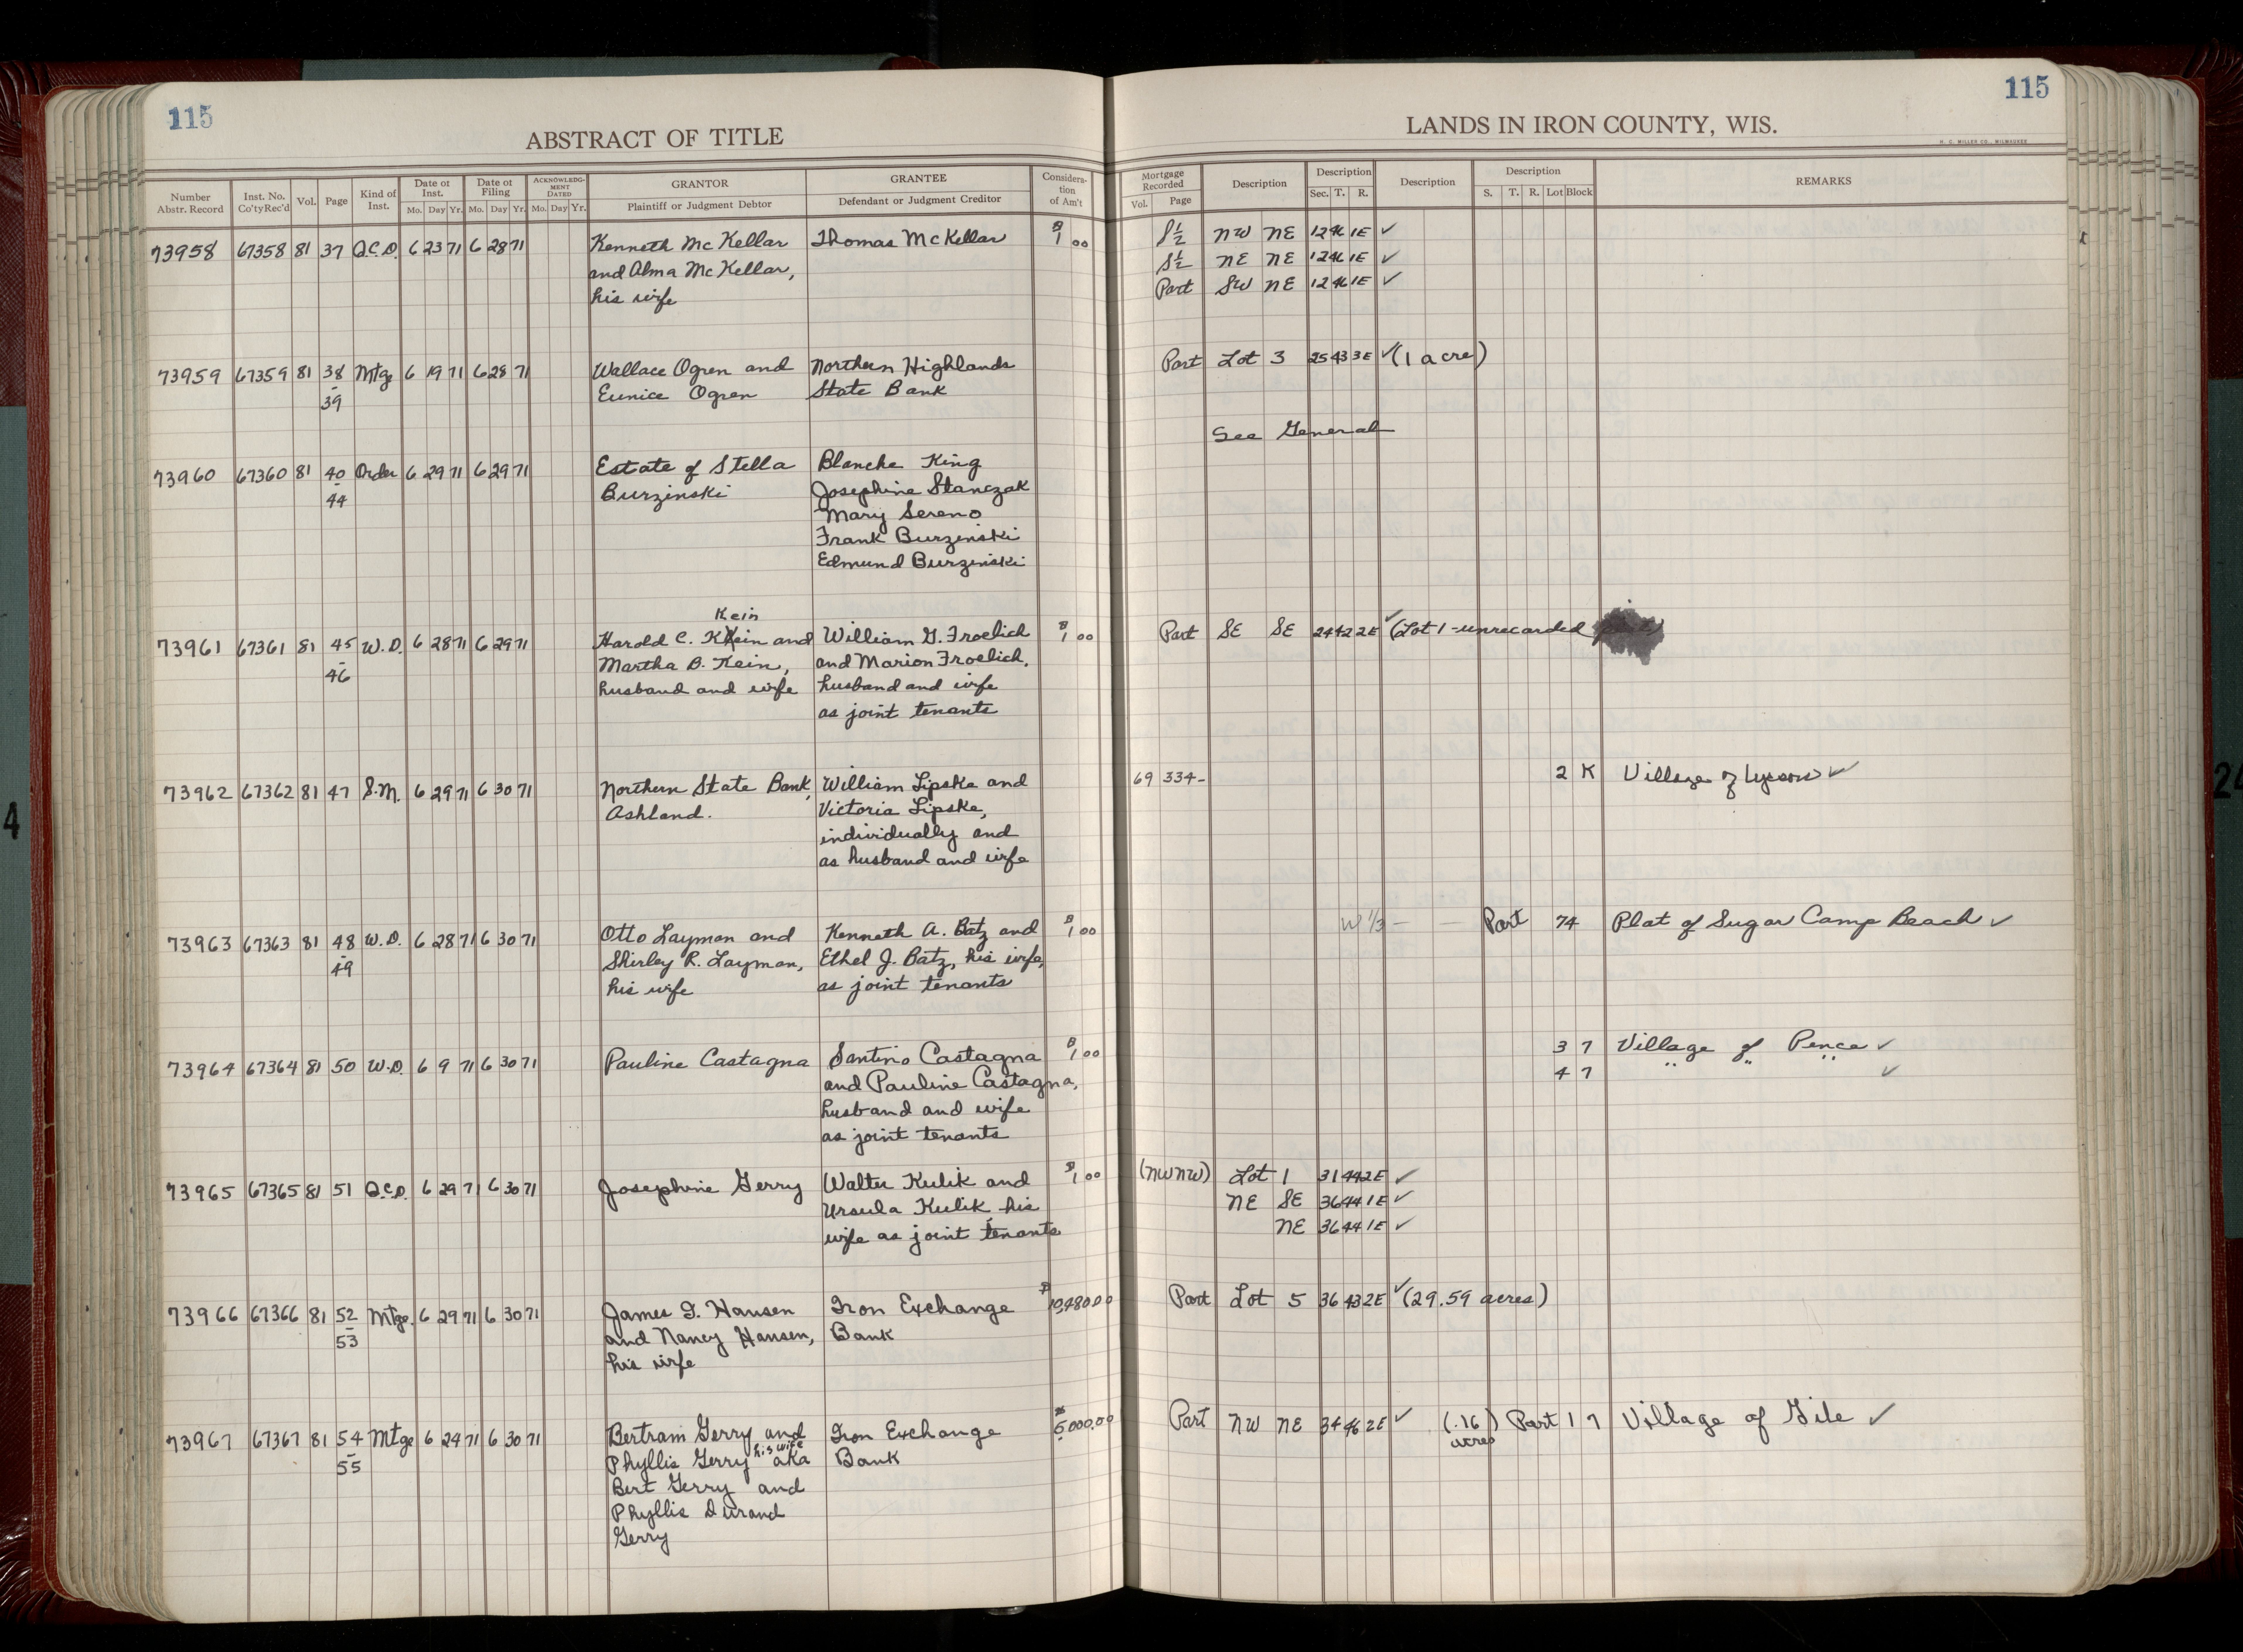 115
115
ABSTRACT OF TITLE
LANDS IN IRON COUNTY, WIS.
H. C. MILLER CO., MILWAUKEE
Number Abstr. Record | Inst. No. Co'ty Rec'd | Vol. | Page | Kind of Inst. | Date of Inst. Mo. Day Yr. | Date of Filing Mo. Day Yr. | ACKNOWLEDGMENT DATED Mo. Day Yr. | GRANTOR Plaintiff or Judgment Debtor | GRANTEE Defendant or Judgment Creditor | Consideration of Am't | Mortgage Recorded Vol. Page | Description | Description Sec. T. R. | Description | Description S. T. R. Lot Block | REMARKS
73958 67358 81 37 Q.C.D. 6 23 71 6 28 71 Kenneth McKellar Thomas McKellar $1 00 S½ NW NE 12 46 1E ✓
and Alma McKellar, S½ NE NE 12 46 1E ✓
his wife Part SW NE 12 46 1E ✓
73959 67359 81 38 Mtge 6 19 71 6 28 71 Wallace Ogren and Northern Highlands Part Lot 3 25 43 3E ✓ (1 acre)
-39 Eunice Ogren State Bank
See General
73960 67360 81 40 Order 6 29 71 6 29 71 Estate of Stella Blanche King
-44 Burzinski Josephine Stanczak
Mary Sereno
Frank Burzinski
Edmund Burzinski
Kein
73961 67361 81 45 W.D. 6 28 71 6 29 71 Harold C. and William G. Froelich $1 00 Part SE SE 24 42 2E ✓ (Lot 1 - unrecorded
-46 Martha B. Kein, and Marion Froelich,
husband and wife husband and wife
as joint tenants
73962 67362 81 47 S.M. 6 29 71 6 30 71 Northern State Bank, William Lipske and 69 334- 2 K Village of ✓
Ashland. Victoria Lipske,
individually and
as husband and wife
73963 67363 81 48 W.D. 6 28 71 6 30 71 Otto Layman and Kenneth A. Batz and $1 00 W 1/3 - - Part 74 Plat of Sugar Camp Beach ✓
-49 Shirley R. Layman, Ethel J. Batz, his wife,
his wife as joint tenants
73964 67364 81 50 W.D. 6 9 71 6 30 71 Pauline Castagna Santino Castagna $1 00 3 7 Village of Pence ✓
and Pauline Castagna, 4 7 " " " ✓
husband and wife
as joint tenants
73965 67365 81 51 Q.C.D. 6 29 71 6 30 71 Josephine Gerry Walter Kulik and $1 00 (NW NW) Lot 1 31 44 2E ✓
Ursula Kulik, his NE SE 36 44 1E ✓
wife as joint tenants NE 36 44 1E ✓
73966 67366 81 52 Mtge. 6 29 71 6 30 71 James T. Hansen Iron Exchange $10,480.00 Part Lot 5 36 43 2E ✓ (29.59 acres)
-53 and Nancy Hansen, Bank
his wife
73967 67367 81 54 Mtge 6 24 71 6 30 71 Bertram Gerry and Iron Exchange $5,000.00 Part NW NE 34 46 2E ✓ (.16 acres) Part 1 7 Village of Gile ✓
-55 Phyllis Gerry his wife aka Bank
Bert Gerry and
Phyllis Durand
Gerry